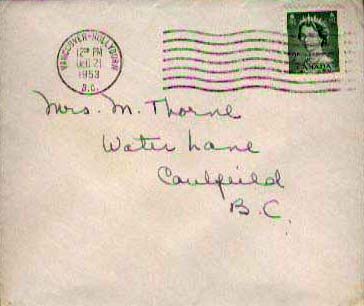 VANCOUVER-HOLLYBURN
12 PM
DEC 21
1953
B.C.
CANADA
Mrs. M. Thorne
Water Lane
Caulfeild
B.C.